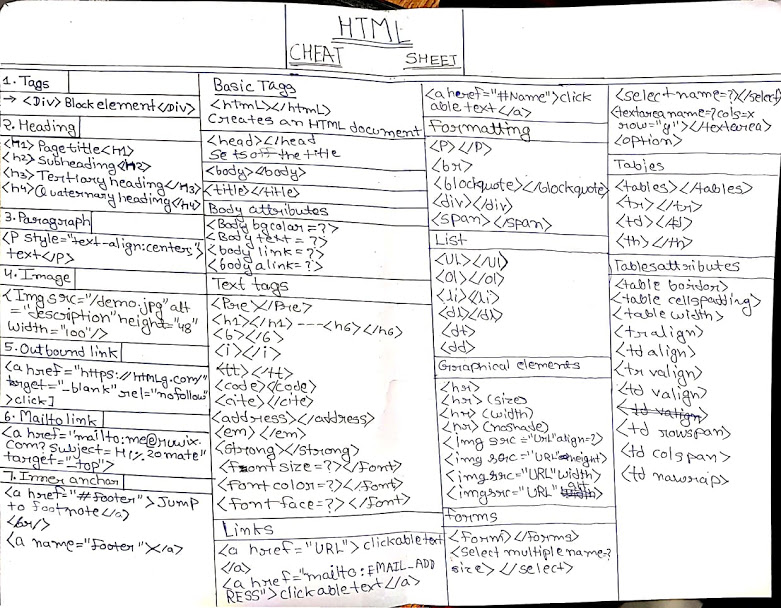 HTML
CHEAT SHEET
1. Tags
→ <Div> Block element </Div>
2. Heading
<H1> Page title <H1>
<h2> Subheading <H2>
<h3> Tertiary heading </H3>
<h4> Quaternary heading </h4>
3. Paragraph
<P style="text-align:centers">
text </P>
4. Image
<Img src="/demo.jpg" alt
="description" height="48"
width="100"/>
5. Outbound link
<a href="https://htmlg.com/"
target="_blank" rel="nofollow"
>click]
6. Mailto link
<a href="mailto:me@ruwix.
com?subject=Hi!%20mate"
target="_top">
7. Inner anchor
<a href="#footer"> Jump
to footnote </a>
<br/>
<a name="footer"></a>
Basic Tags
<html></html>
Creates an HTML document
<head></head
Sets off the title
<body><body>
<title></title>
Body attributes
<Body bgcolor=?>
<Body text=?>
<body link=?>
<body alink=?>
Text tags
<Pre></Pre>
<h1></h1> --- <h6></h6>
<b></b>
<i></i>
<tt></tt>
<code></code>
<cite></cite>
<address></address>
<em></em>
<strong></strong>
<front size=?></font>
<font color=?></font>
<font face=?></font>
Links
<a href="URL"> clickable text
</a>
<a href="mailto:EMAIL_ADD
RESS"> clickable text </a>
<a href="#Name">click
able text </a>
Formatting
<P></P>
<br>
<blockquote></blockquote>
<div></div>
<span></span>
List
<UL></ul>
<Ol></ol>
<li></li>
<dl></dl>
<dt>
<dd>
Graphical elements
<hr>
<hr> (size)
<hr> (width)
<hr> (noshade)
<img src="Url" align=?>
<img src="URL" height>
<img src="URL" width>
<img src="URL" alt>
forms
<form></forms>
<Select multiple name=?
size></select>
<select name=?></select>
<textarea name=? cols=x
row="y"></textarea>
<option>
Tables
<tables></tables>
<tr></tr>
<td></td>
<th></th>
Tables attributes
<table border>
<table cellspadding>
<table width>
<tr align>
<td align>
<tr valign>
<td valign>
<td valign>
<td rowspan>
<td colspan>
<td nowrap>